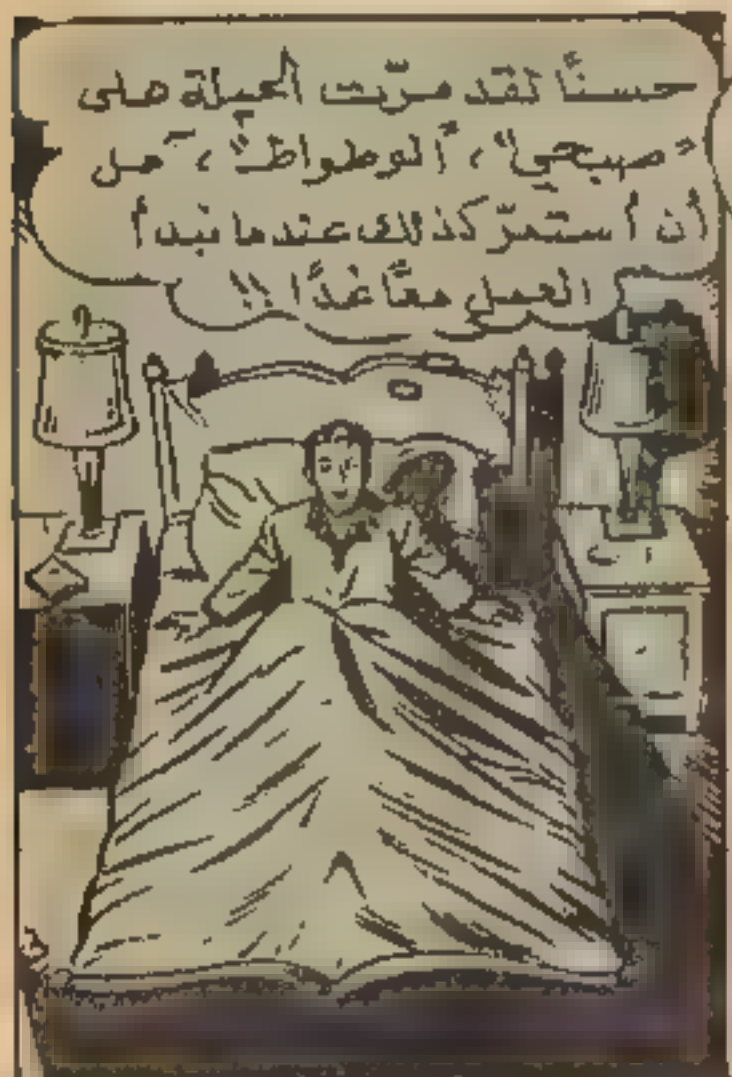 حسنًا لقد مرّت الحيلة على
"صبحي"، "الوطواط"، آمل
أن أستمرّ كذلك عندما نبدأ
العمل معًا غدًا !!